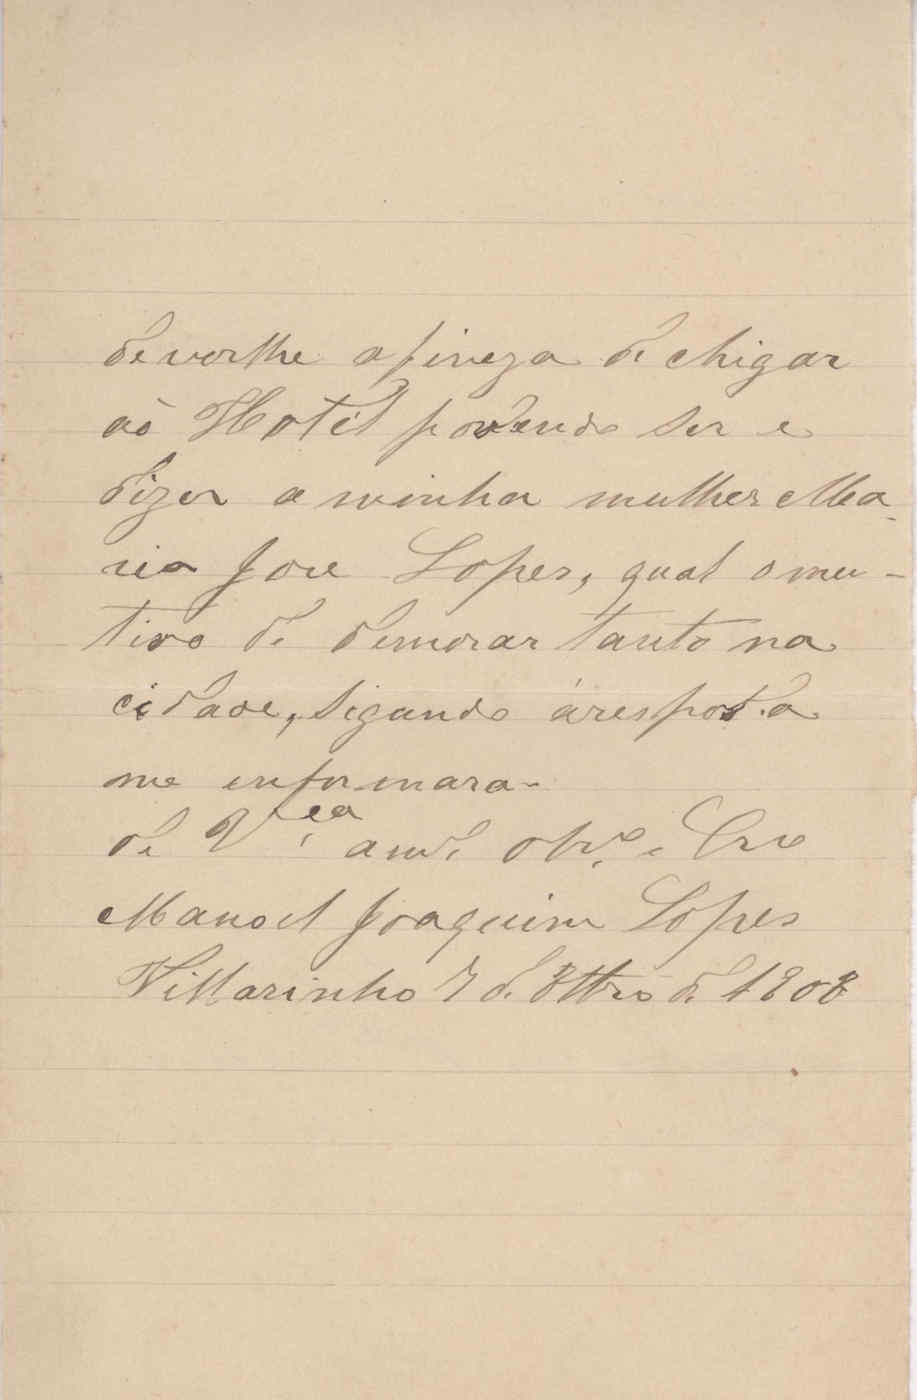 deverlhe a fineza de chigar
aó Hotel podendo ser e
dizer a minha mulher Ma-
ria Jose Lopes, qual o mu-
tivo de demorar tanto na
cidade, sigundo á resposta
me enformara-
de V.ª am.º obr.º e Cro
Manoel Joaquim Lopes
Villarinho 7 d. 8tbro de 1808